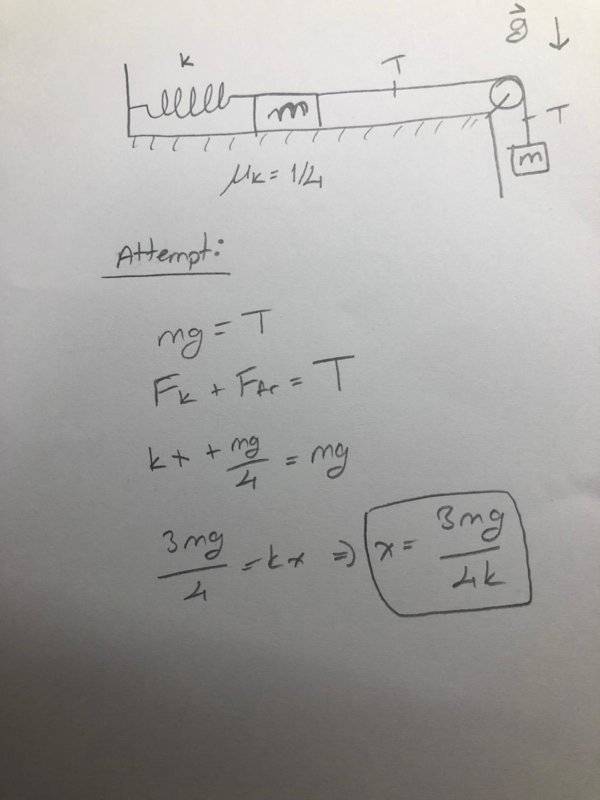 g ↓
k
T
m
T
m
μk = 1/4
Attempt:
mg = T
Fk + Ffr = T
kx + mg/4 = mg
3mg/4 = kx ⇒ x = 3mg/4k